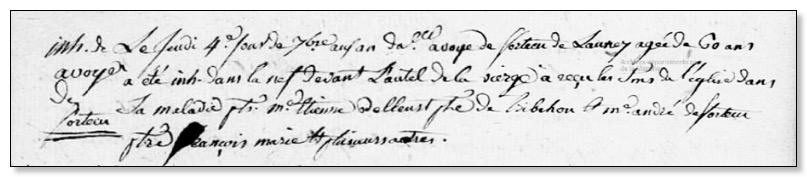 inh. de Le Jeudi 4e. Jour de 7bre ausan da.lle avoye de sorteu de Launey agée de 60 ans
avoye a été inh. dans la nef devant L'autel de la vierge a reçu les Smts de l'Eglise dans
de Sa maladie ptr. mr. Etienne ptre de mr. andré de Sorteu
Sorteu ptre françois marie et plusieurs autres.